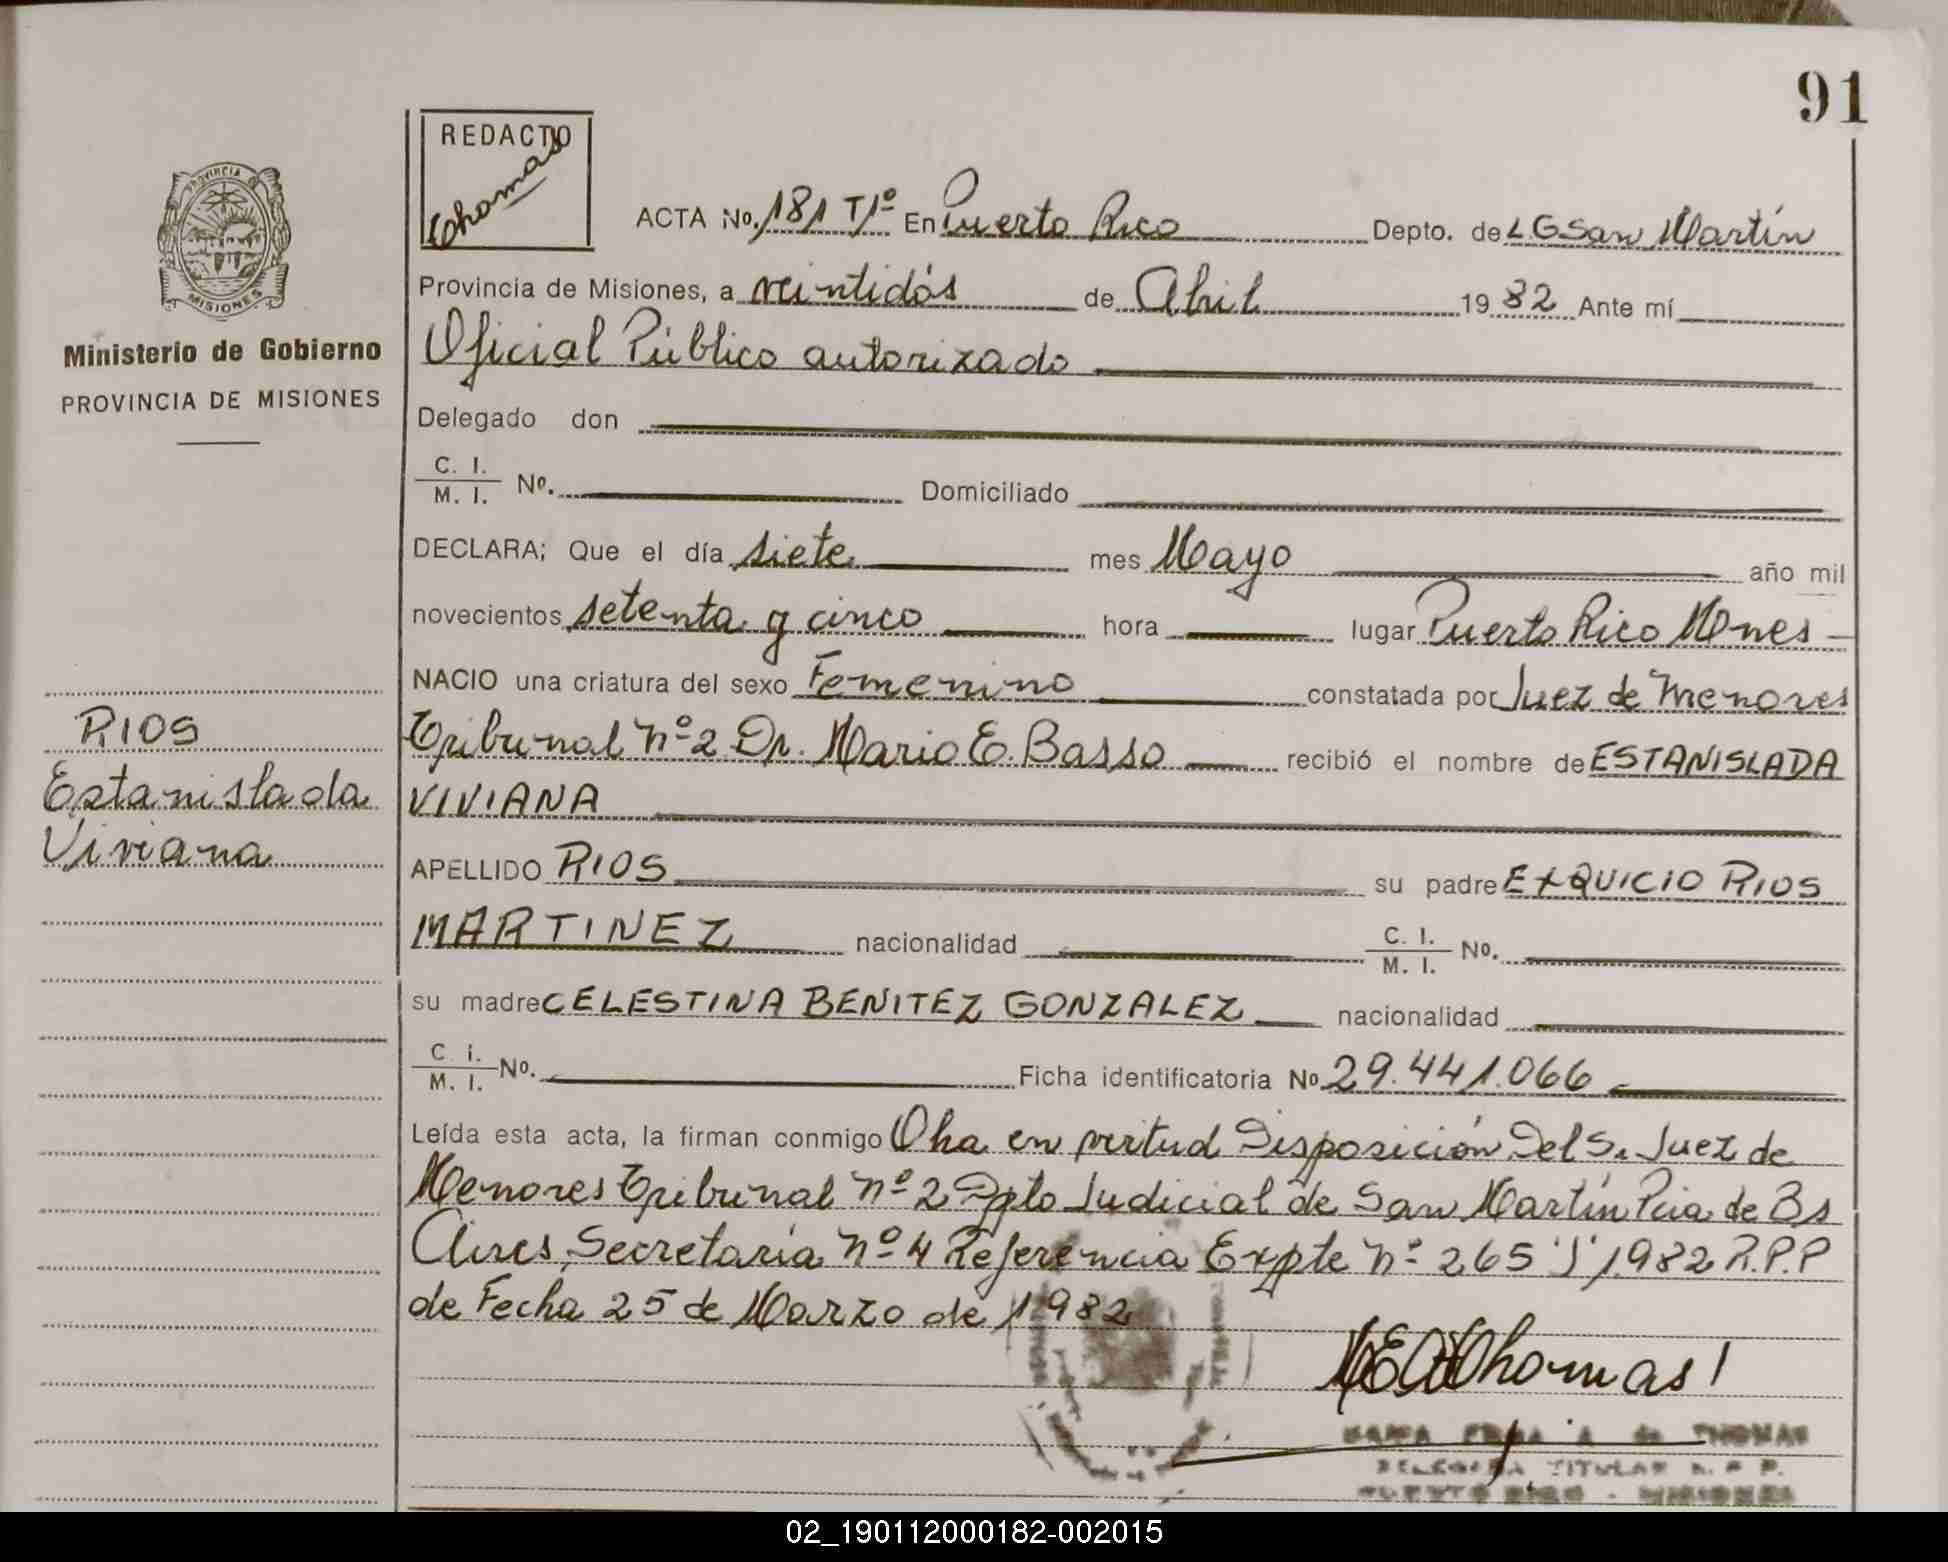 91
REDACTO
Thomas
PROVINCIA
MISIONES
Ministerio de Gobierno
PROVINCIA DE MISIONES
ACTA No. 181 T1º En Puerto Rico Depto. de L G San Martín
Provincia de Misiones, a veintidós de Abril 1982 Ante mí
Oficial Público autorizado
Delegado don
C. I.
M. I. No. Domiciliado
DECLARA; Que el día siete mes Mayo año mil
novecientos setenta y cinco hora lugar Puerto Rico Mnes
NACIO una criatura del sexo Femenino constatada por Juez de Menores
Tribunal nº 2 Dr. Mario E. Basso recibió el nombre de ESTANISLADA
VIVIANA
RIOS
Estanislada
Viviana
APELLIDO RIOS su padre EXQUICIO RIOS
MARTINEZ nacionalidad C. I.
M. I. No.
su madre CELESTINA BENITEZ GONZALEZ nacionalidad
C i.
M. I. No. Ficha identificatoria No 29.441.066
Leída esta acta, la firman conmigo Oha en virtud Disposición Del S. Juez de
Menores Tribunal nº 2 Dpto Judicial de San Martín Pcia de Bs
Aires, Secretaría nº 4 Referencia Expte nº 265 'J' 1982 R.P.P
de Fecha 25 de Marzo de 1982
Thomas
de THOMAS
DELEGADA TITULAR R. P. P.
PUERTO RICO - MISIONES
02_190112000182-002015